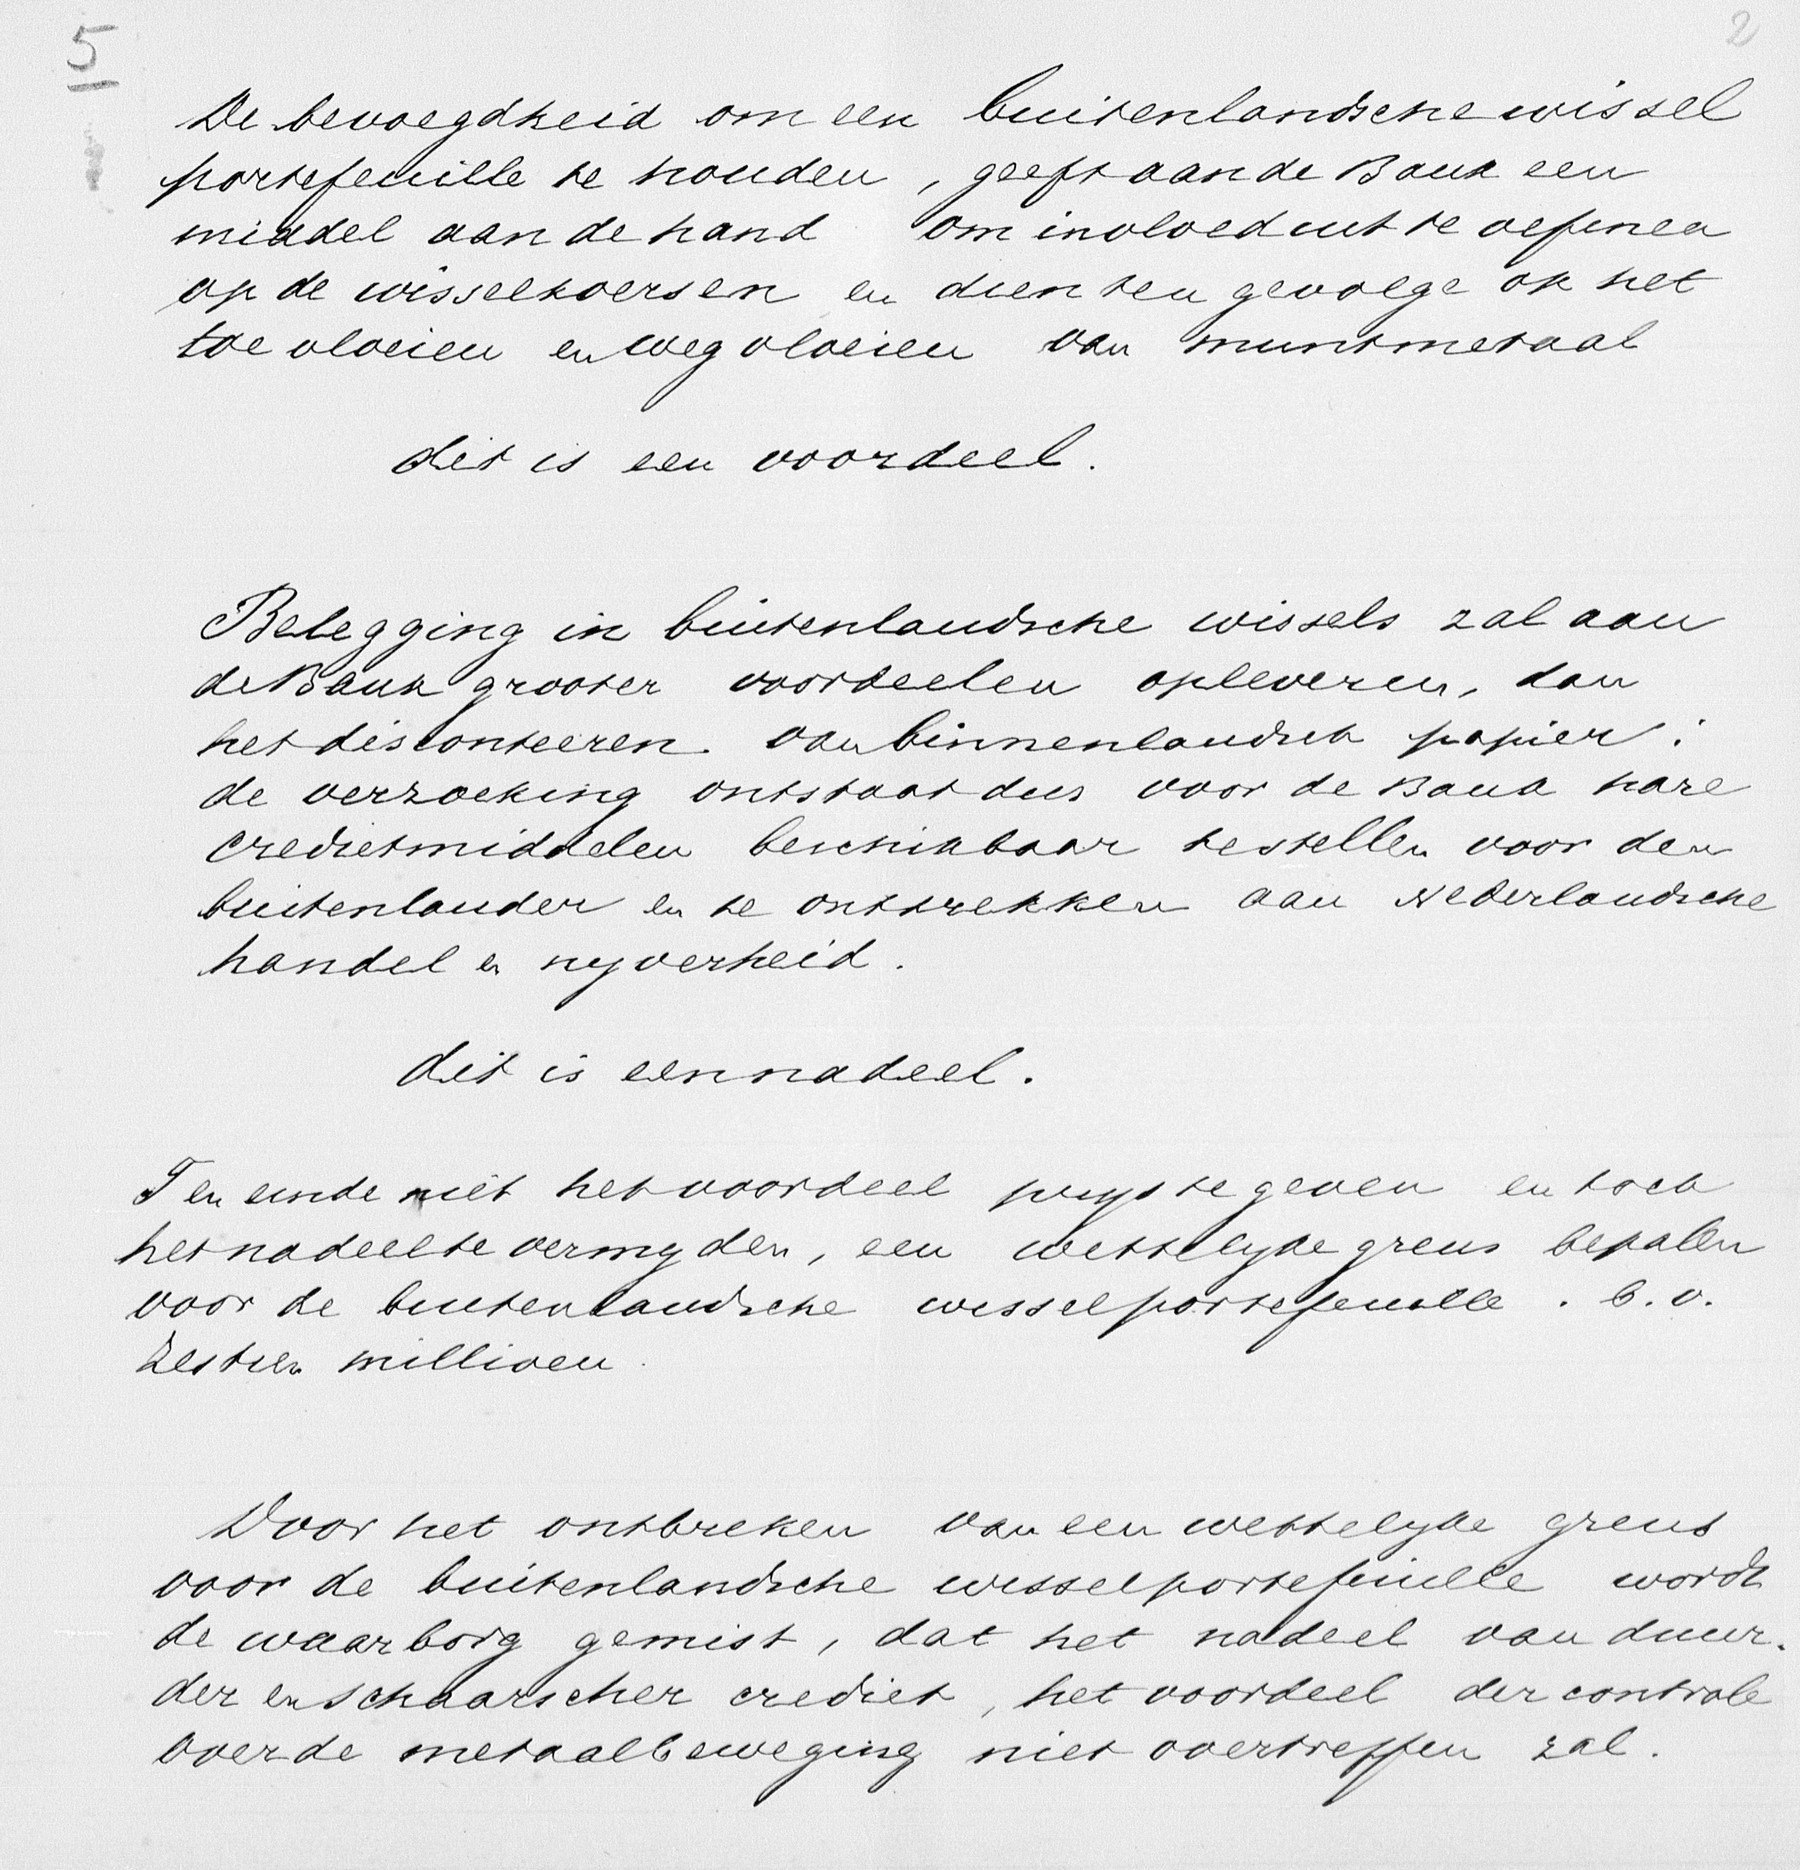 5
2
De bevoegdheid om een buitenlandsche wissel
portefeuille te houden, geeft aan de Bank een
middel aan de hand om invloed uit te oefenen
op de wisselkoersen en dien ten gevolge op het
toevloeien en wegvloeien van muntmetaal
dit is een voordeel.
Belegging in buitenlandsche wissels zal aan
de Bank grooter voordeelen opleveren, dan
het disconteeren van binnenlandsch papier:
de verzoeking ontstaat dus voor de Bank hare
credietmiddelen beschikbaar te stellen voor den
buitenlander en te onttrekken aan Nederlandsche
handel en nyverheid.
dit is een nadeel.
Ten einde niet het voordeel prijs te geven en toch
het nadeel te vermyden, een wettelyke grens bepalen
voor de buitenlandsche wisselportefeuille. b.v.
zestien millioen.
Door het ontbreken van een wettelyke grens
voor de buitenlandsche wisselportefeuille wordt
de waarborg gemist, dat het nadeel van duur-
der en schaarscher crediet, het voordeel der controle
over de metaalbeweging niet overtreffen zal.